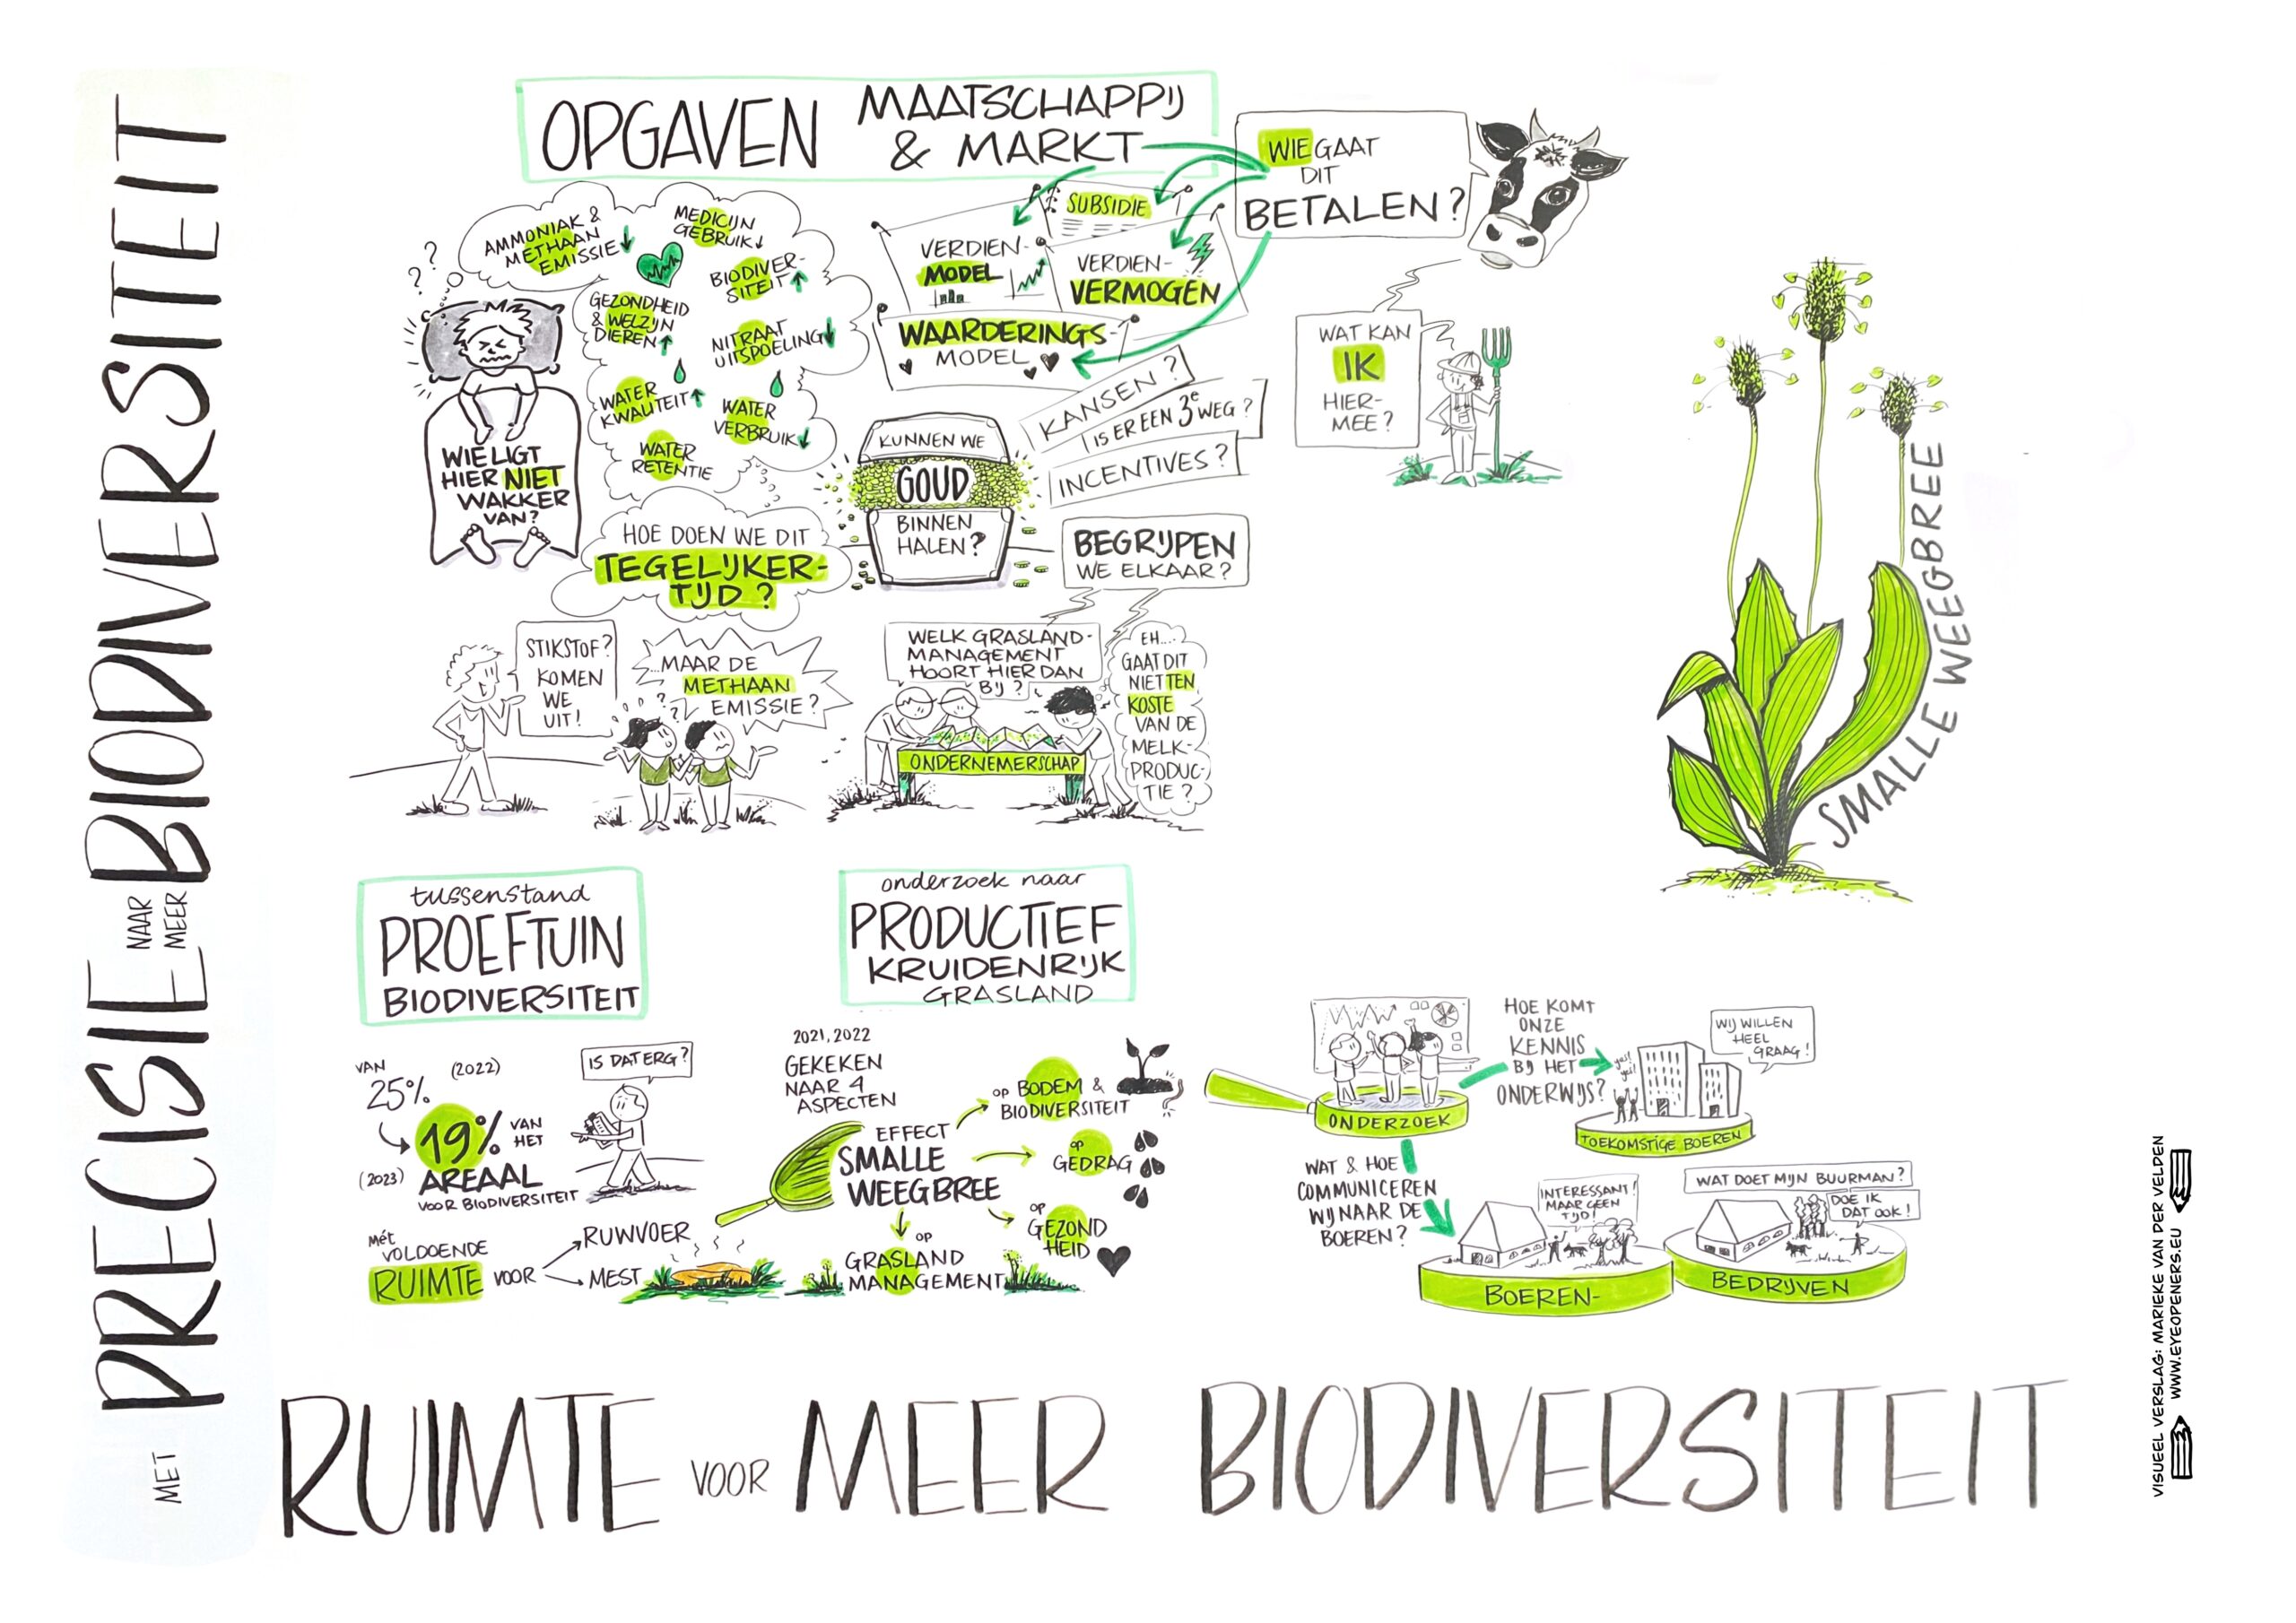 MET
PRECISIE
NAAR
MEER
BIODIVERSITEIT
OPGAVEN
MAATSCHAPPIJ
& MARKT
AMMONIAK &
METHAAN
EMISSIE
MEDICIJN
GEBRUIK
BIODIVER-
SITEIT
GEZONDHEID
& WELZIJN
DIEREN
NITRAAT
UITSPOELING
WATER
KWALITEIT
WATER
VERBRUIK
WATER
RETENTIE
? ?
WIE LIGT
HIER NIET
WAKKER
VAN?
HOE DOEN WE DIT
TEGELIJKER-
TIJD?
SUBSIDIE
VERDIEN-
MODEL
VERDIEN-
VERMOGEN
WAARDERINGS-
MODEL
WIE GAAT
DIT
BETALEN?
WAT KAN
IK
HIER-
MEE?
KUNNEN WE
GOUD
BINNEN
HALEN?
KANSEN?
IS ER EEN 3e WEG?
INCENTIVES?
BEGRIJPEN
WE ELKAAR?
STIKSTOF?
KOMEN
WE
UIT!
...MAAR DE
METHAAN
EMISSIE?
? ?
WELK GRASLAND-
MANAGEMENT
HOORT HIER DAN
BIJ?
EH....
GAAT DIT
NIET TEN
KOSTE
VAN DE
MELK-
PRODUC-
TIE?
ONDERNEMERSCHAP
SMALLE WEEGBREE
tussenstand
PROEFTUIN
BIODIVERSITEIT
VAN
25%
(2022)
19% VAN
HET
(2023) AREAAL
VOOR BIODIVERSITEIT
IS DAT ERG?
Mét
VOLDOENDE
RUIMTE VOOR
RUWVOER
MEST
onderzoek naar
PRODUCTIEF
KRUIDENRIJK
GRASLAND
2021, 2022
GEKEKEN
NAAR 4
ASPECTEN
EFFECT
SMALLE
WEEGBREE
op BODEM &
BIODIVERSITEIT
op
GEDRAG
op
GEZOND
HEID
op
GRASLAND
MANAGEMENT
ONDERZOEK
HOE KOMT
ONZE
KENNIS
BIJ HET
ONDERWIJS?
yes!
yes!
WIJ WILLEN
HEEL
GRAAG!
TOEKOMSTIGE BOEREN
WAT & HOE
COMMUNICEREN
WIJ NAAR DE
BOEREN?
INTERESSANT!
MAAR GEEN
TIJD!
WAT DOET MIJN BUURMAN?
DOE IK
DAT OOK!
BOEREN-
BEDRIJVEN
RUIMTE VOOR MEER BIODIVERSITEIT
VISUEEL VERSLAG: MARIEKE VAN DER VELDEN
WWW.EYEOPENERS.EU